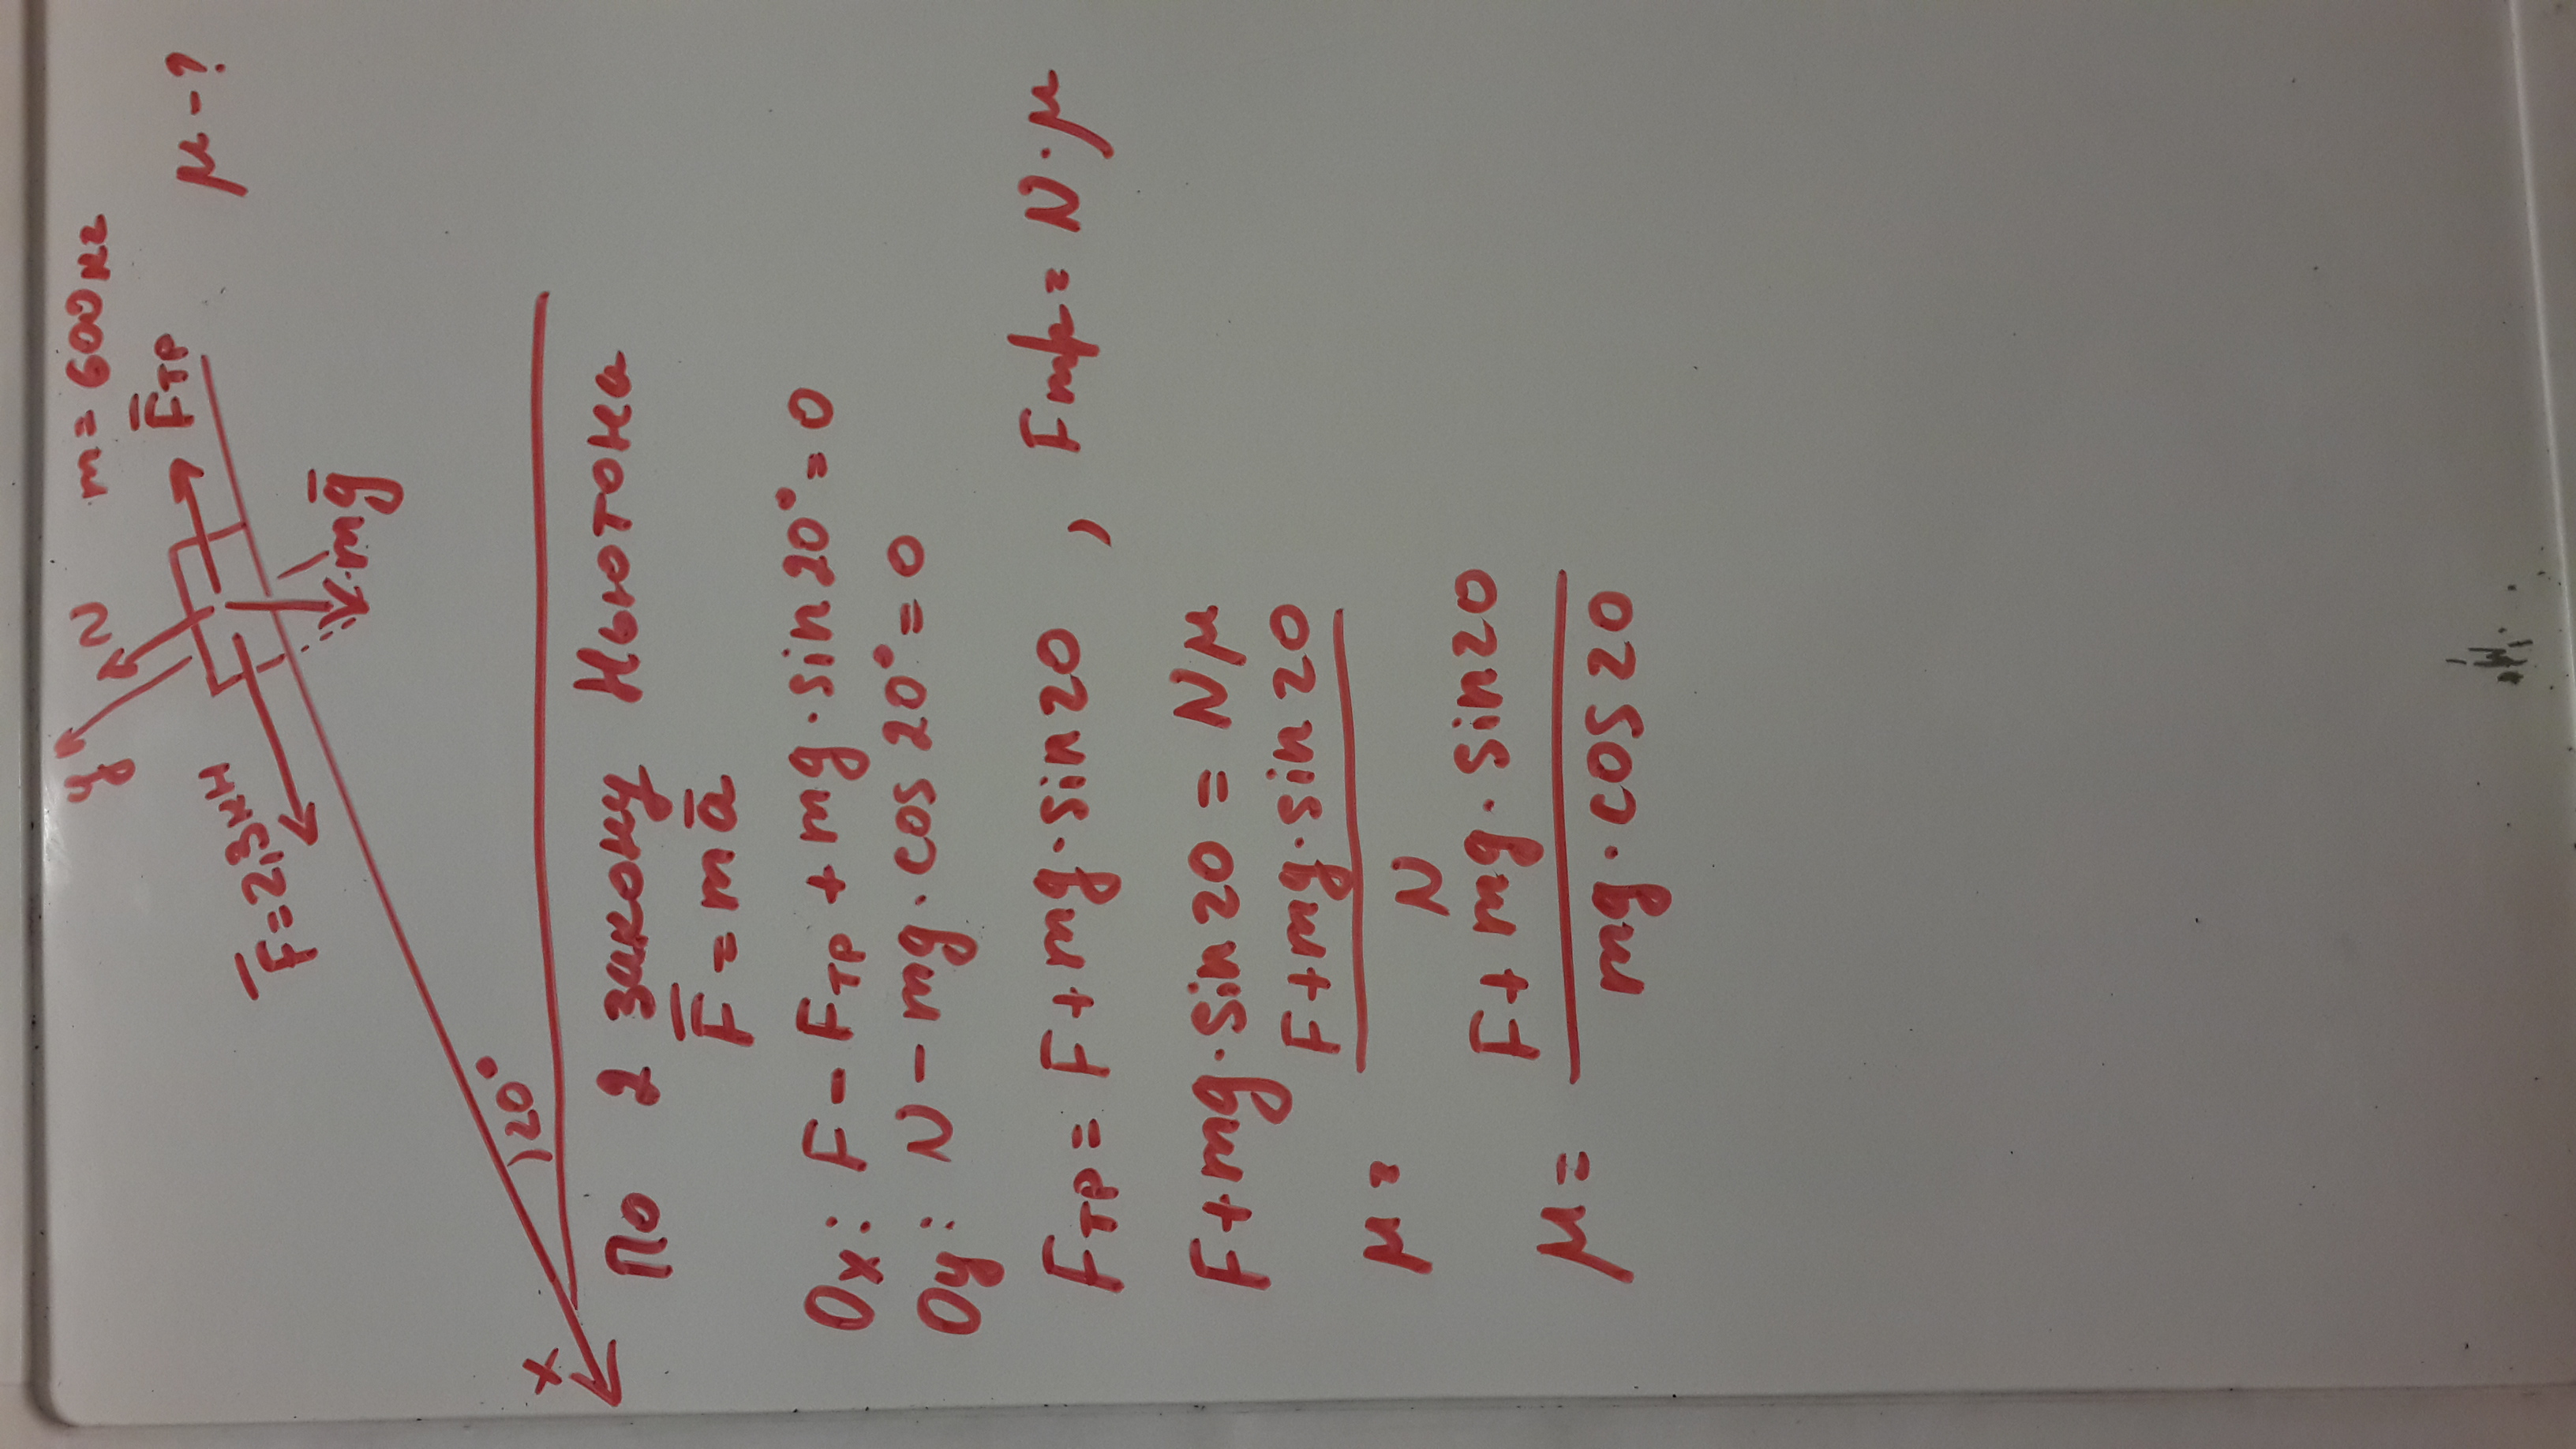 m = 600кг
μ - ?
y
N
F̅тр
F̅ = 2,3кН
mg̅
20°
x
По 2 закону Ньютона
F̅ = ma̅
Ox: F - Fтр + mg · sin 20° = 0
Oy: N - mg · cos 20° = 0
Fтр = F + mg · sin 20 , Fтр = N · μ
F + mg · sin 20 = Nμ
μ = F + mg · sin 20
N
μ = F + mg · sin 20
mg · cos 20